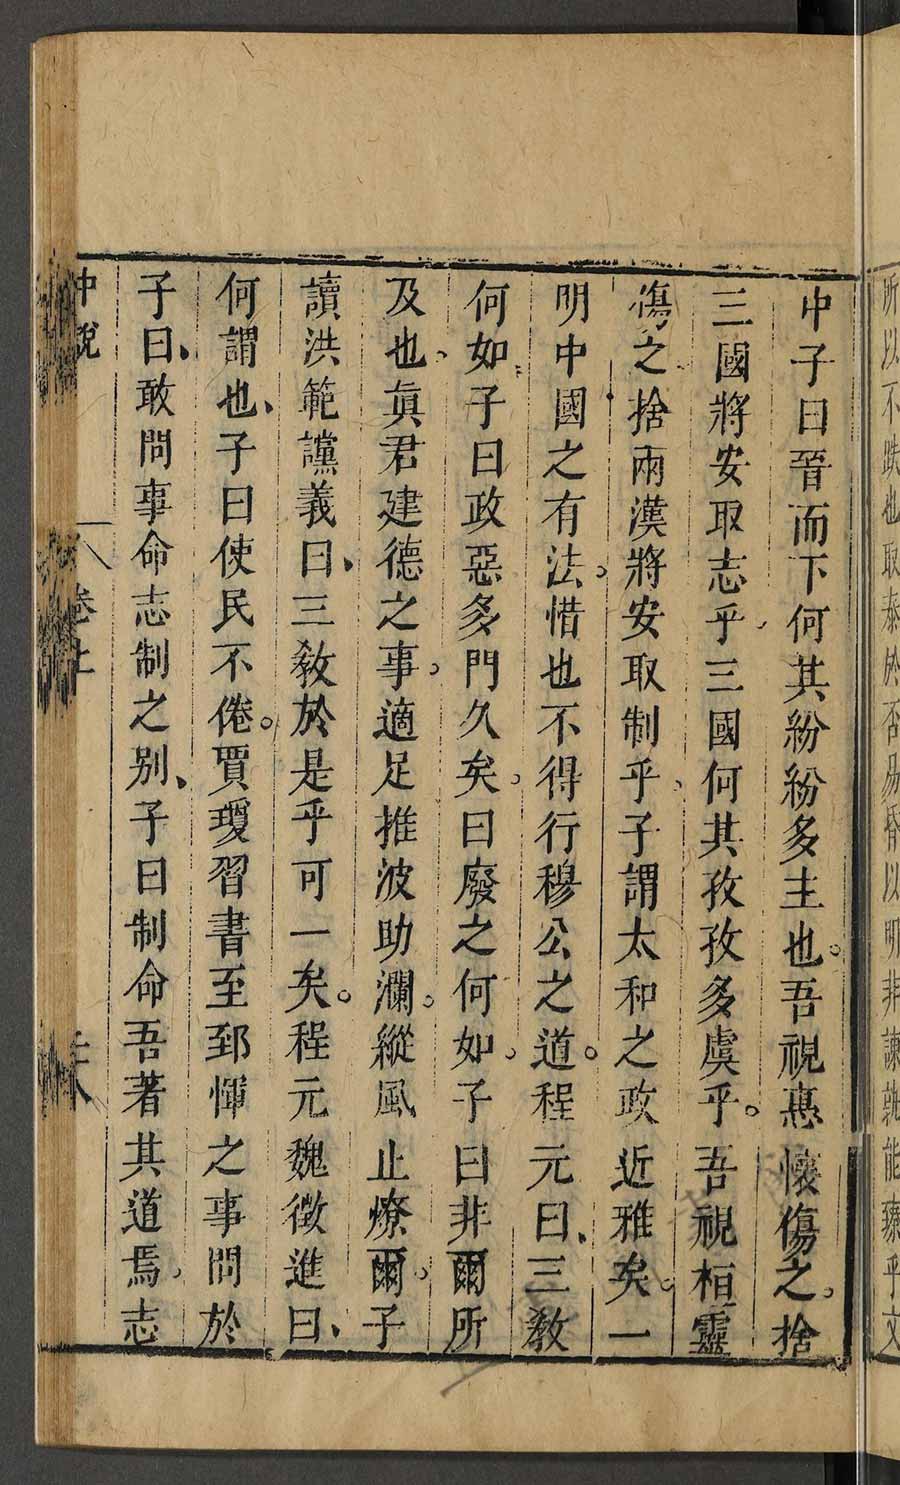 所以不跌也取泰於否易昏以明非諫孰能臻乎文
中子曰晉而下何其紛紛多主也吾視惠懷傷之捨
三國將安取志乎三國何其孜孜多虞乎吾視桓靈
傷之捨兩漢將安取制乎子謂太和之政近雅矣一
明中國之有法惜也不得行穆公之道程元曰三教
何如子曰政惡多門久矣曰廢之何如子曰非爾所
及也眞君建德之事適足推波助瀾縱風止燎爾子
讀洪範讜義曰三教於是乎可一矣程元魏徵進曰
何謂也子曰使民不倦賈瓊習書至郅惲之事問於
子曰敢問事命志制之別子曰制命吾著其道焉志
中說 卷上